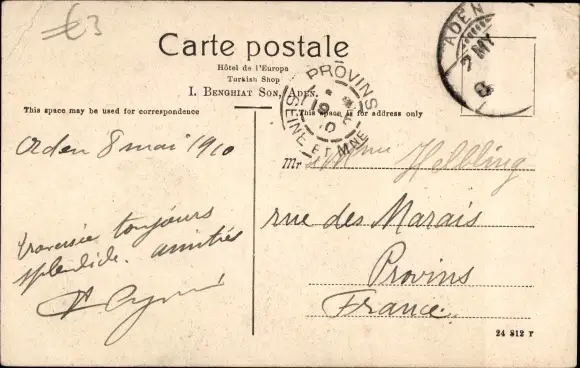 €3
Carte postale
Hôtel de l'Europa
Turkish Shop
I. Benghiat Son, Aden.
ADEN
7 MY
PROVINS
SEINE ET MNE
This space may be used for correspondence
This space is for address only
Aden 8 mai 1910
traversée toujours
splendide. amitiés
Mr & Mme Helbling
rue des Marais
Provins
France.
24 812 r